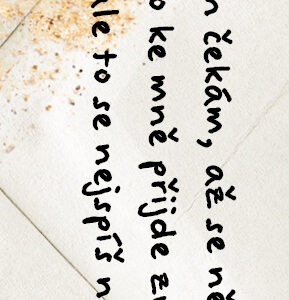 čekám, až se
ke mně přijde
to se nejspíš